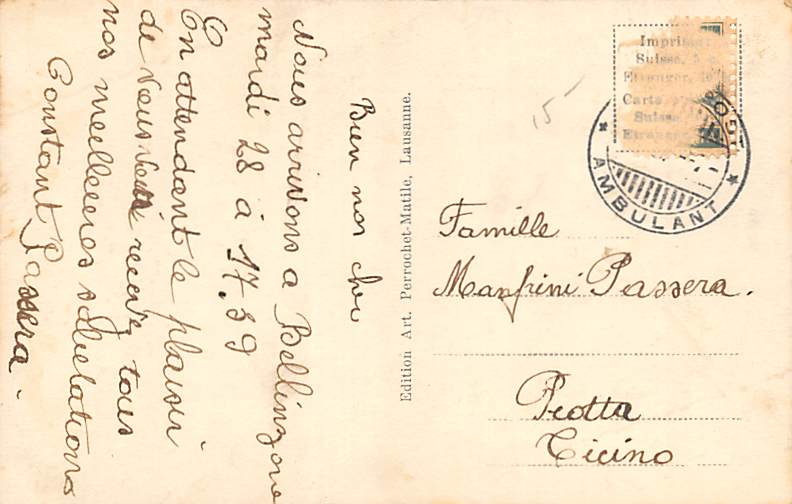 Bien nos cher
Nous arrivons a Bellinzone
mardi 28 à 17.39
En attendant le plaisir
de vous recevez tous
nos meilleures salutations
Constant Passera.
Edition Art. Perrochet-Matile, Lausanne.
Suisse,
Etranger,
Carte
Suisse
Etranger
AMBULANT
15-
Famille
Manfrini Passera.
Piotta
Ticino